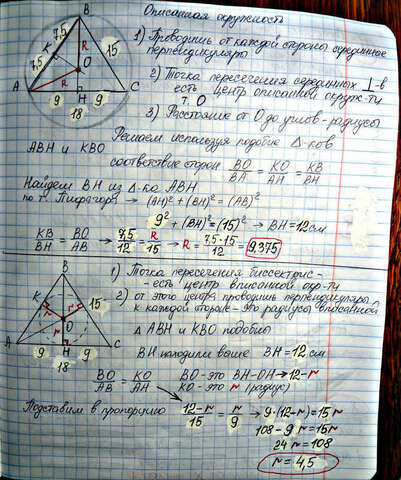 Описанная окружность
B
7,5
7,5
K
R
15
O
R
A
9
H
9
C
18
1) Проводишь от каждой стороны серединные
перпендикуляры
2) Точка пересечения серединных ⊥-в
есть центр описанной окруж-ти
т. O
3) Расстояние от O до углов - радиусы
Решаем используя подобие Δ-ков
ABH и KBO
соответствие сторон BO/BA = KO/AH = KB/BH
Найдем BH из Δ-ка ABH
по т. Пифагора → (AH)² + (BH)² = (AB)²
9² + (BH)² = (15)² → BH = 12 см
KB/BH = BO/AB → 7,5/12 = R/15 → R = 7,5·15/12 = 9,375
B
K
15
r
r
O
r
A
9
H
9
C
18
1) Точка пересечения биссектрис -
- есть центр вписанной окр-ти
2) от этого центра проводишь перпендикуляры
к каждой стороне - это радиусы вписанной
Δ ABH и KBO подобны
BH находили выше BH = 12 см
BO/AB = KO/AH BO - это BH-OH → 12-r
KO - это r (радиус)
Подставим в пропорцию 12-r/15 = r/9 → 9·(12-r) = 15r
108 - 9r = 15r
24r = 108
r = 4,5